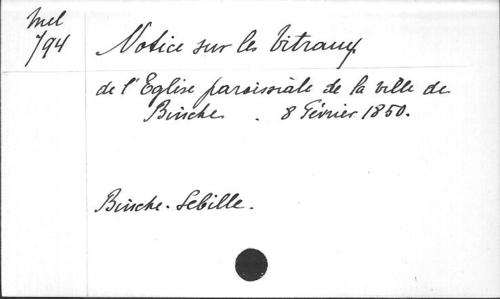 Mel
794
Notice sur les Vitraux
de l'Eglise paroissiale de la ville de
Binche. 8 Février 1850.
Binche. Sebille.